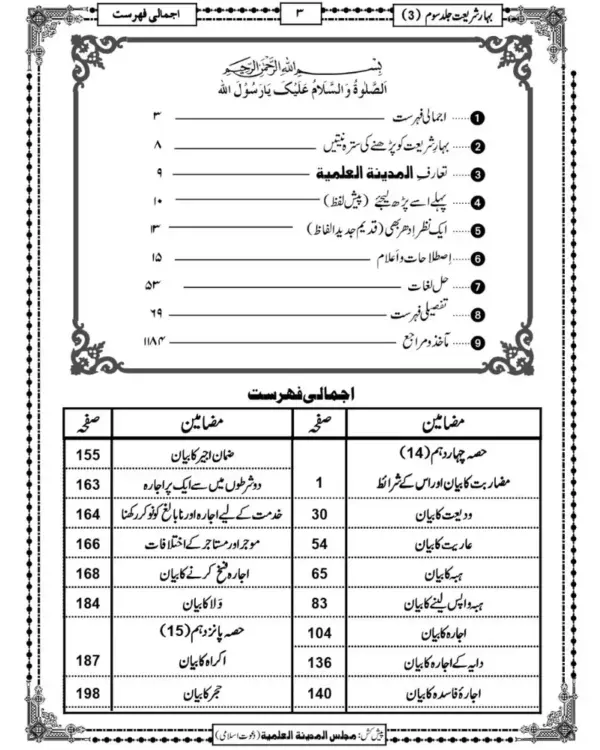 بہار شریعت جلد سوم (3)
۳
اجمالی فہرست
بِسْمِ اللهِ الرَّحْمٰنِ الرَّحِيْمِ
اَلصَّلٰوةُ وَالسَّلَامُ عَلَيْكَ يَارَسُوْلَ الله
1 ...... اجمالی فہرست ۳
2 ...... بہارِ شریعت کو پڑھنے کی سترہ نیتیں ۸
3 ...... تعارفِ المدينة العلمية ۹
4 ...... پہلے اسے پڑھ لیجئے (پیش لفظ) ۱۰
5 ...... ایک نظر ادھر بھی (قدیم جدید الفاظ) ۱۳
6 ...... اِصطلاحات و اَعلام ۱۵
7 ...... حل لغات ۵۳
8 ...... تفصیلی فہرست ۶۹
9 ...... مآخذ و مراجع ۱۱۸۴
اجمالی فہرست
مضامین صفحہ مضامین صفحہ
حصہ چہاردہم (14) ضمان اجیر کا بیان 155
مضاربت کا بیان اور اس کے شرائط 1 دو شرطوں میں سے ایک پر اجارہ 163
ودیعت کا بیان 30 خدمت کے لیے اجارہ اور نابالغ کو نوکر رکھنا 164
عاریت کا بیان 54 موجر اور مستاجر کے اختلافات 166
ہبہ کا بیان 65 اجارہ فسخ کرنے کا بیان 168
ہبہ واپس لینے کا بیان 83 وَلا کا بیان 184
اجارہ کا بیان 104 حصہ پانزدہم (15)
دایہ کے اجارہ کا بیان 136 اکراہ کا بیان 187
اجارۂ فاسدہ کا بیان 140 حجر کا بیان 198
پیش کش: مجلس المدينة العلمية (دعوت اسلامی)